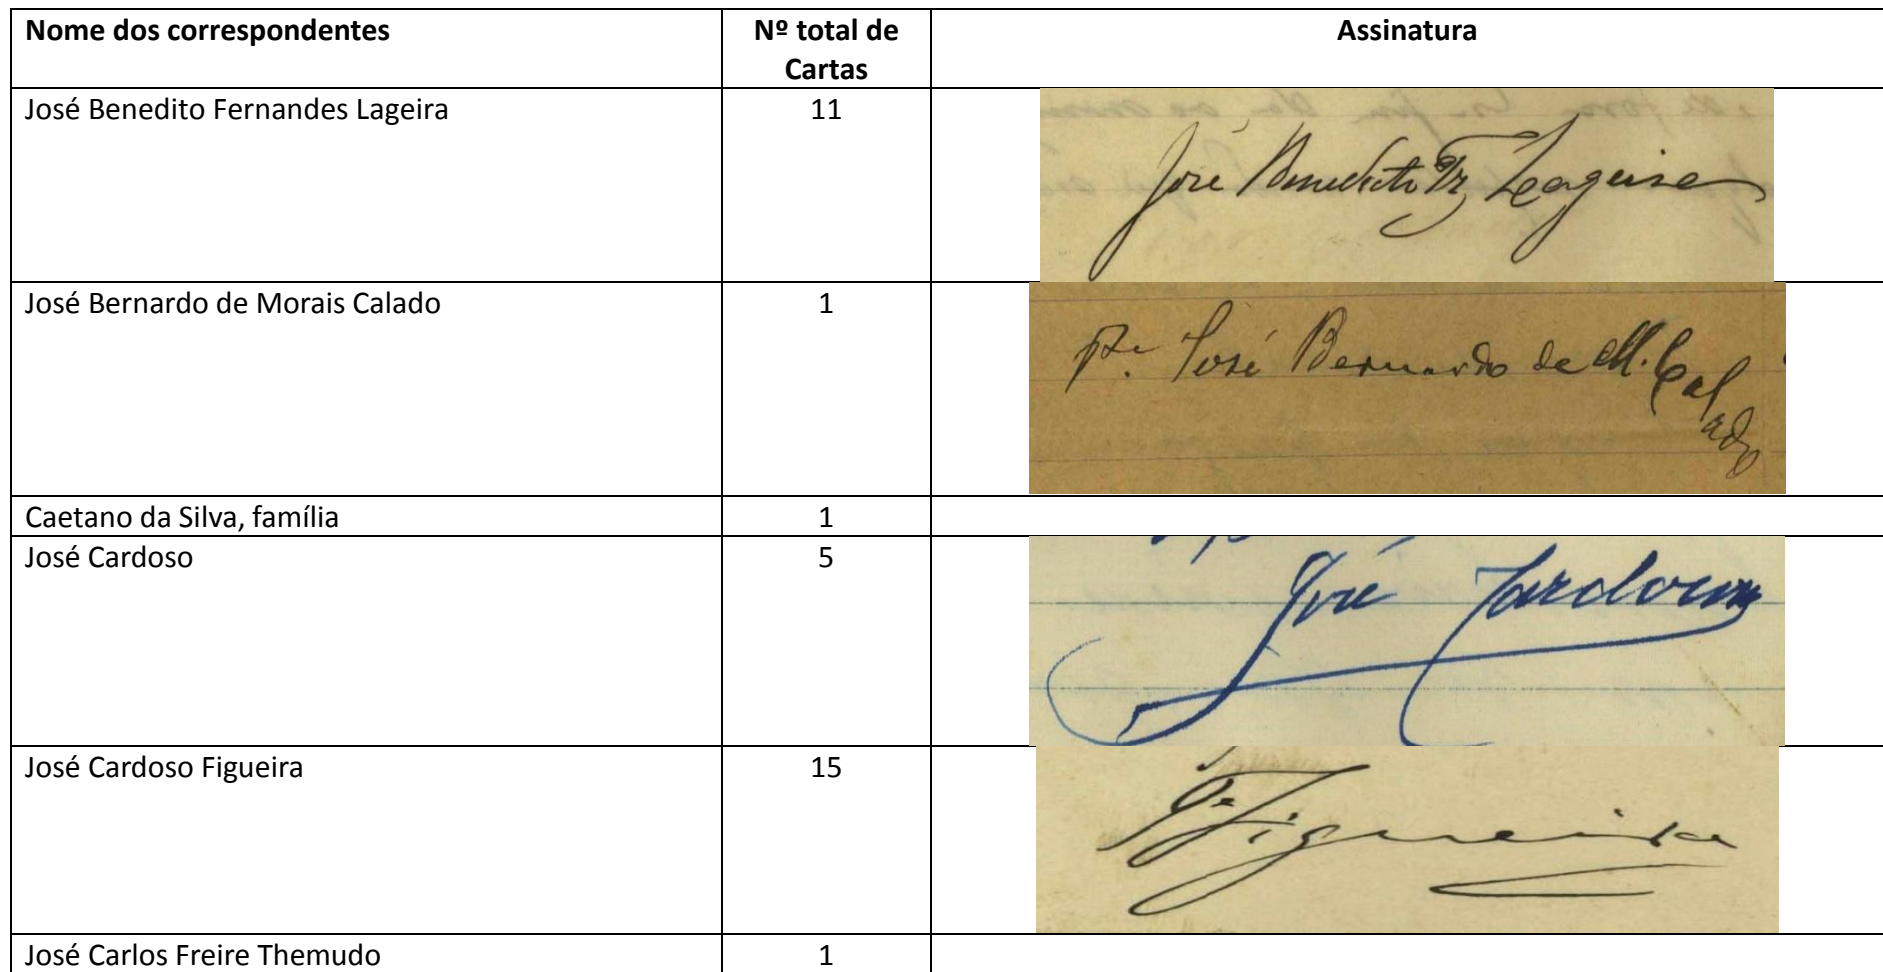 Nome dos correspondentes
Nº total de
Cartas
Assinatura
José Benedito Fernandes Lageira
11
José Benedicto Fz Lageira
José Bernardo de Morais Calado
1
Pe José Bernardo de M. Calado
Caetano da Silva, família
1
José Cardoso
5
José Cardoso
José Cardoso Figueira
15
Figueira
José Carlos Freire Themudo
1